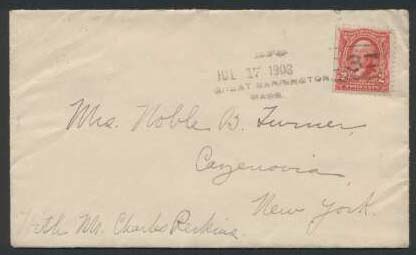 JUL 17 1903
GREAT BARRINGTON,
MASS.
Mrs. Noble B. Turner,
Cazenovia,
New York.
With Mr. Charles Perkins.